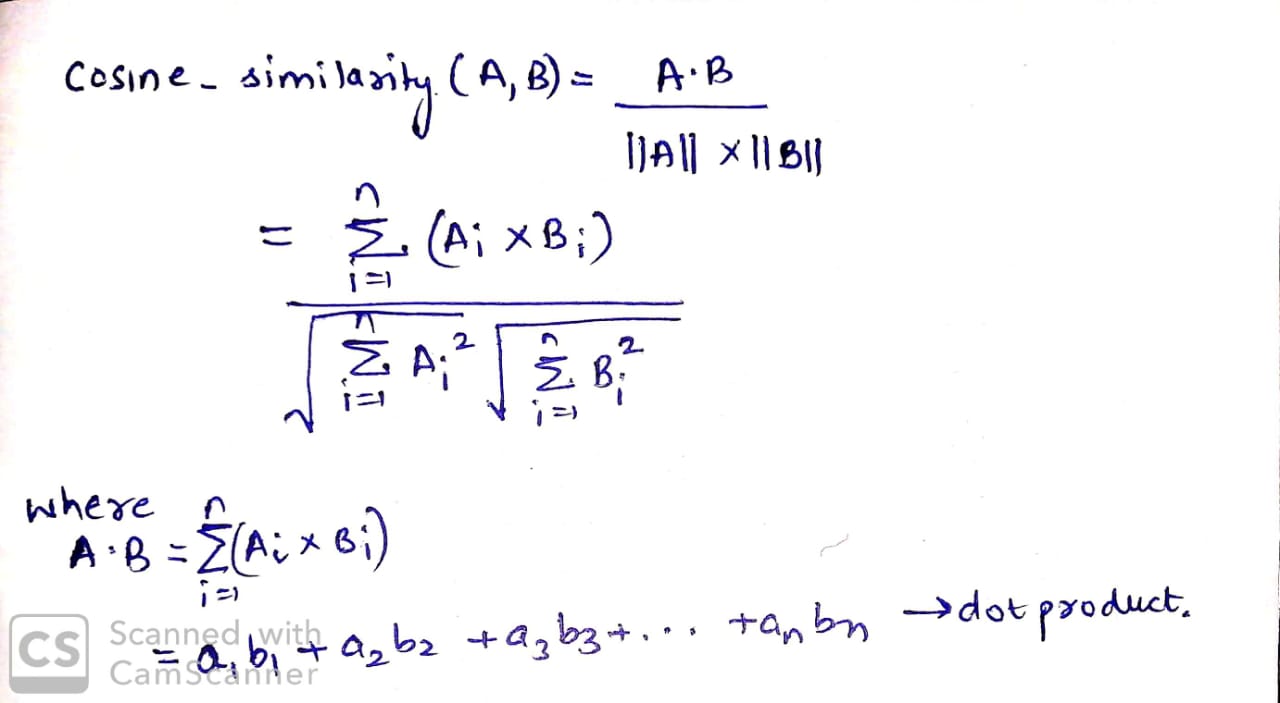 Cosine- similarity (A, B) = A·B
||A|| × ||B||
= n
Σ (Ai × Bi)
i=1
√ n Σ i=1 Ai² √ n Σ i=1 Bi²
where
A·B = n Σ i=1 (Ai × Bi)
= a₁b₁ + a₂b₂ + a₃b₃ + ... + anbn → dot product.
CS Scanned with
CamScanner